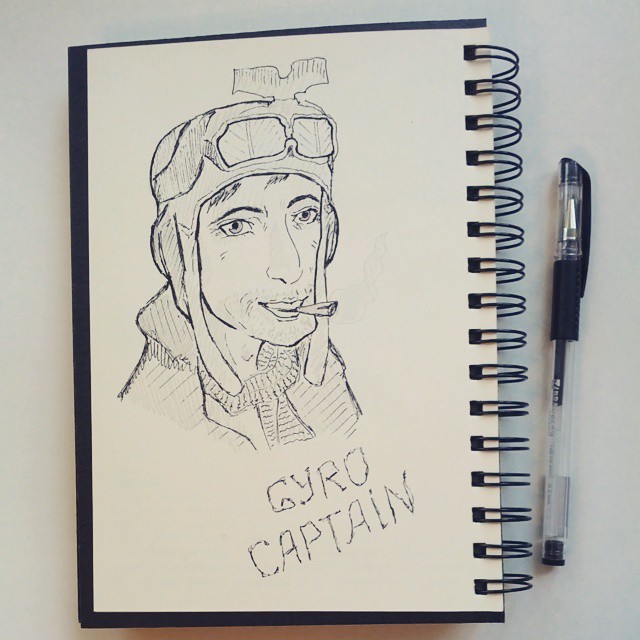 GYRO
CAPTAIN